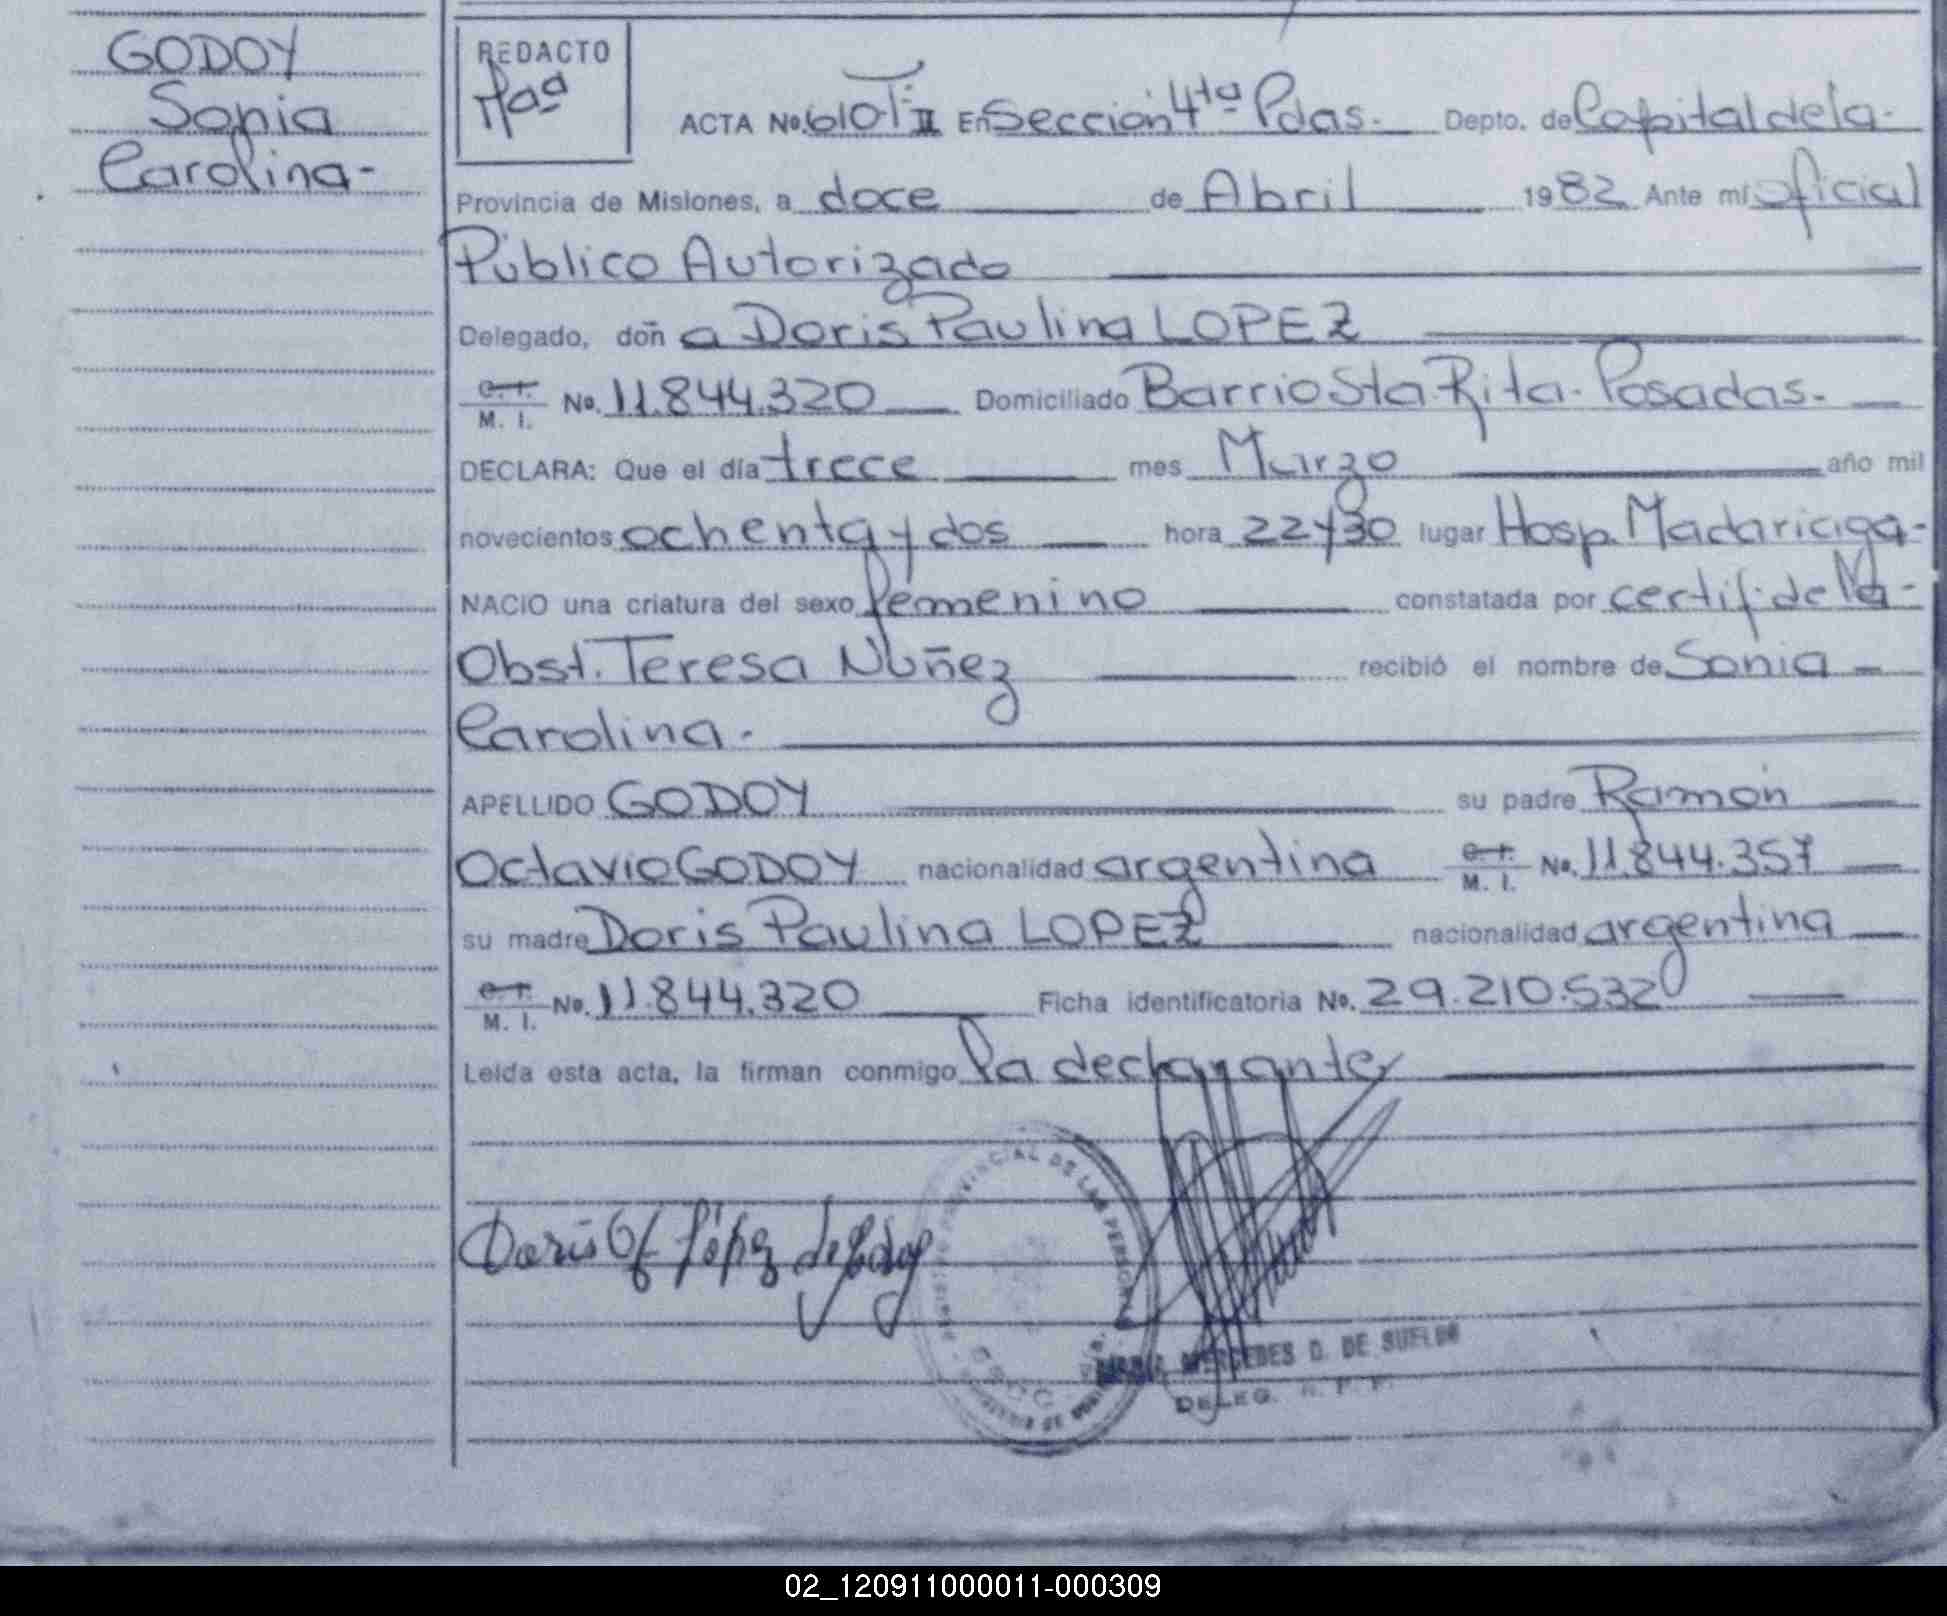 GODOY
Sonia
Carolina-
REDACTO
ACTA No. 610-T II En Sección 4ta Pdas. Depto. de Capital de la-
Provincia de Misiones, a doce de Abril 1982 Ante mí oficial
Público Autorizado
Delegado, doña Doris Paulina LOPEZ
C.I. M.I. No. 11.844.320 Domiciliado Barrio Sta. Rita- Posadas.-
DECLARA: Que el día trece mes Marzo año mil
novecientos ochenta y dos hora 22y30 lugar Hosp. Madariaga-
NACIO una criatura del sexo femenino constatada por certif. de la-
Obst. Teresa Núñez recibió el nombre de Sonia
Carolina.-
APELLIDO GODOY su padre Ramón
Octavio GODOY nacionalidad argentina C.I. M.I. No. 11.844.357
su madre Doris Paulina LOPEZ nacionalidad argentina
C.I. M.I. No. 11.844.320 Ficha identificatoria No. 29.210.532
Leída esta acta, la firman conmigo la declarante
Doris López de Godoy
PROVINCIAL DE LAS PERSONAS
MERCEDES D. DE SUELDO
DELEG. R. P. P.
02_120911000011-000309